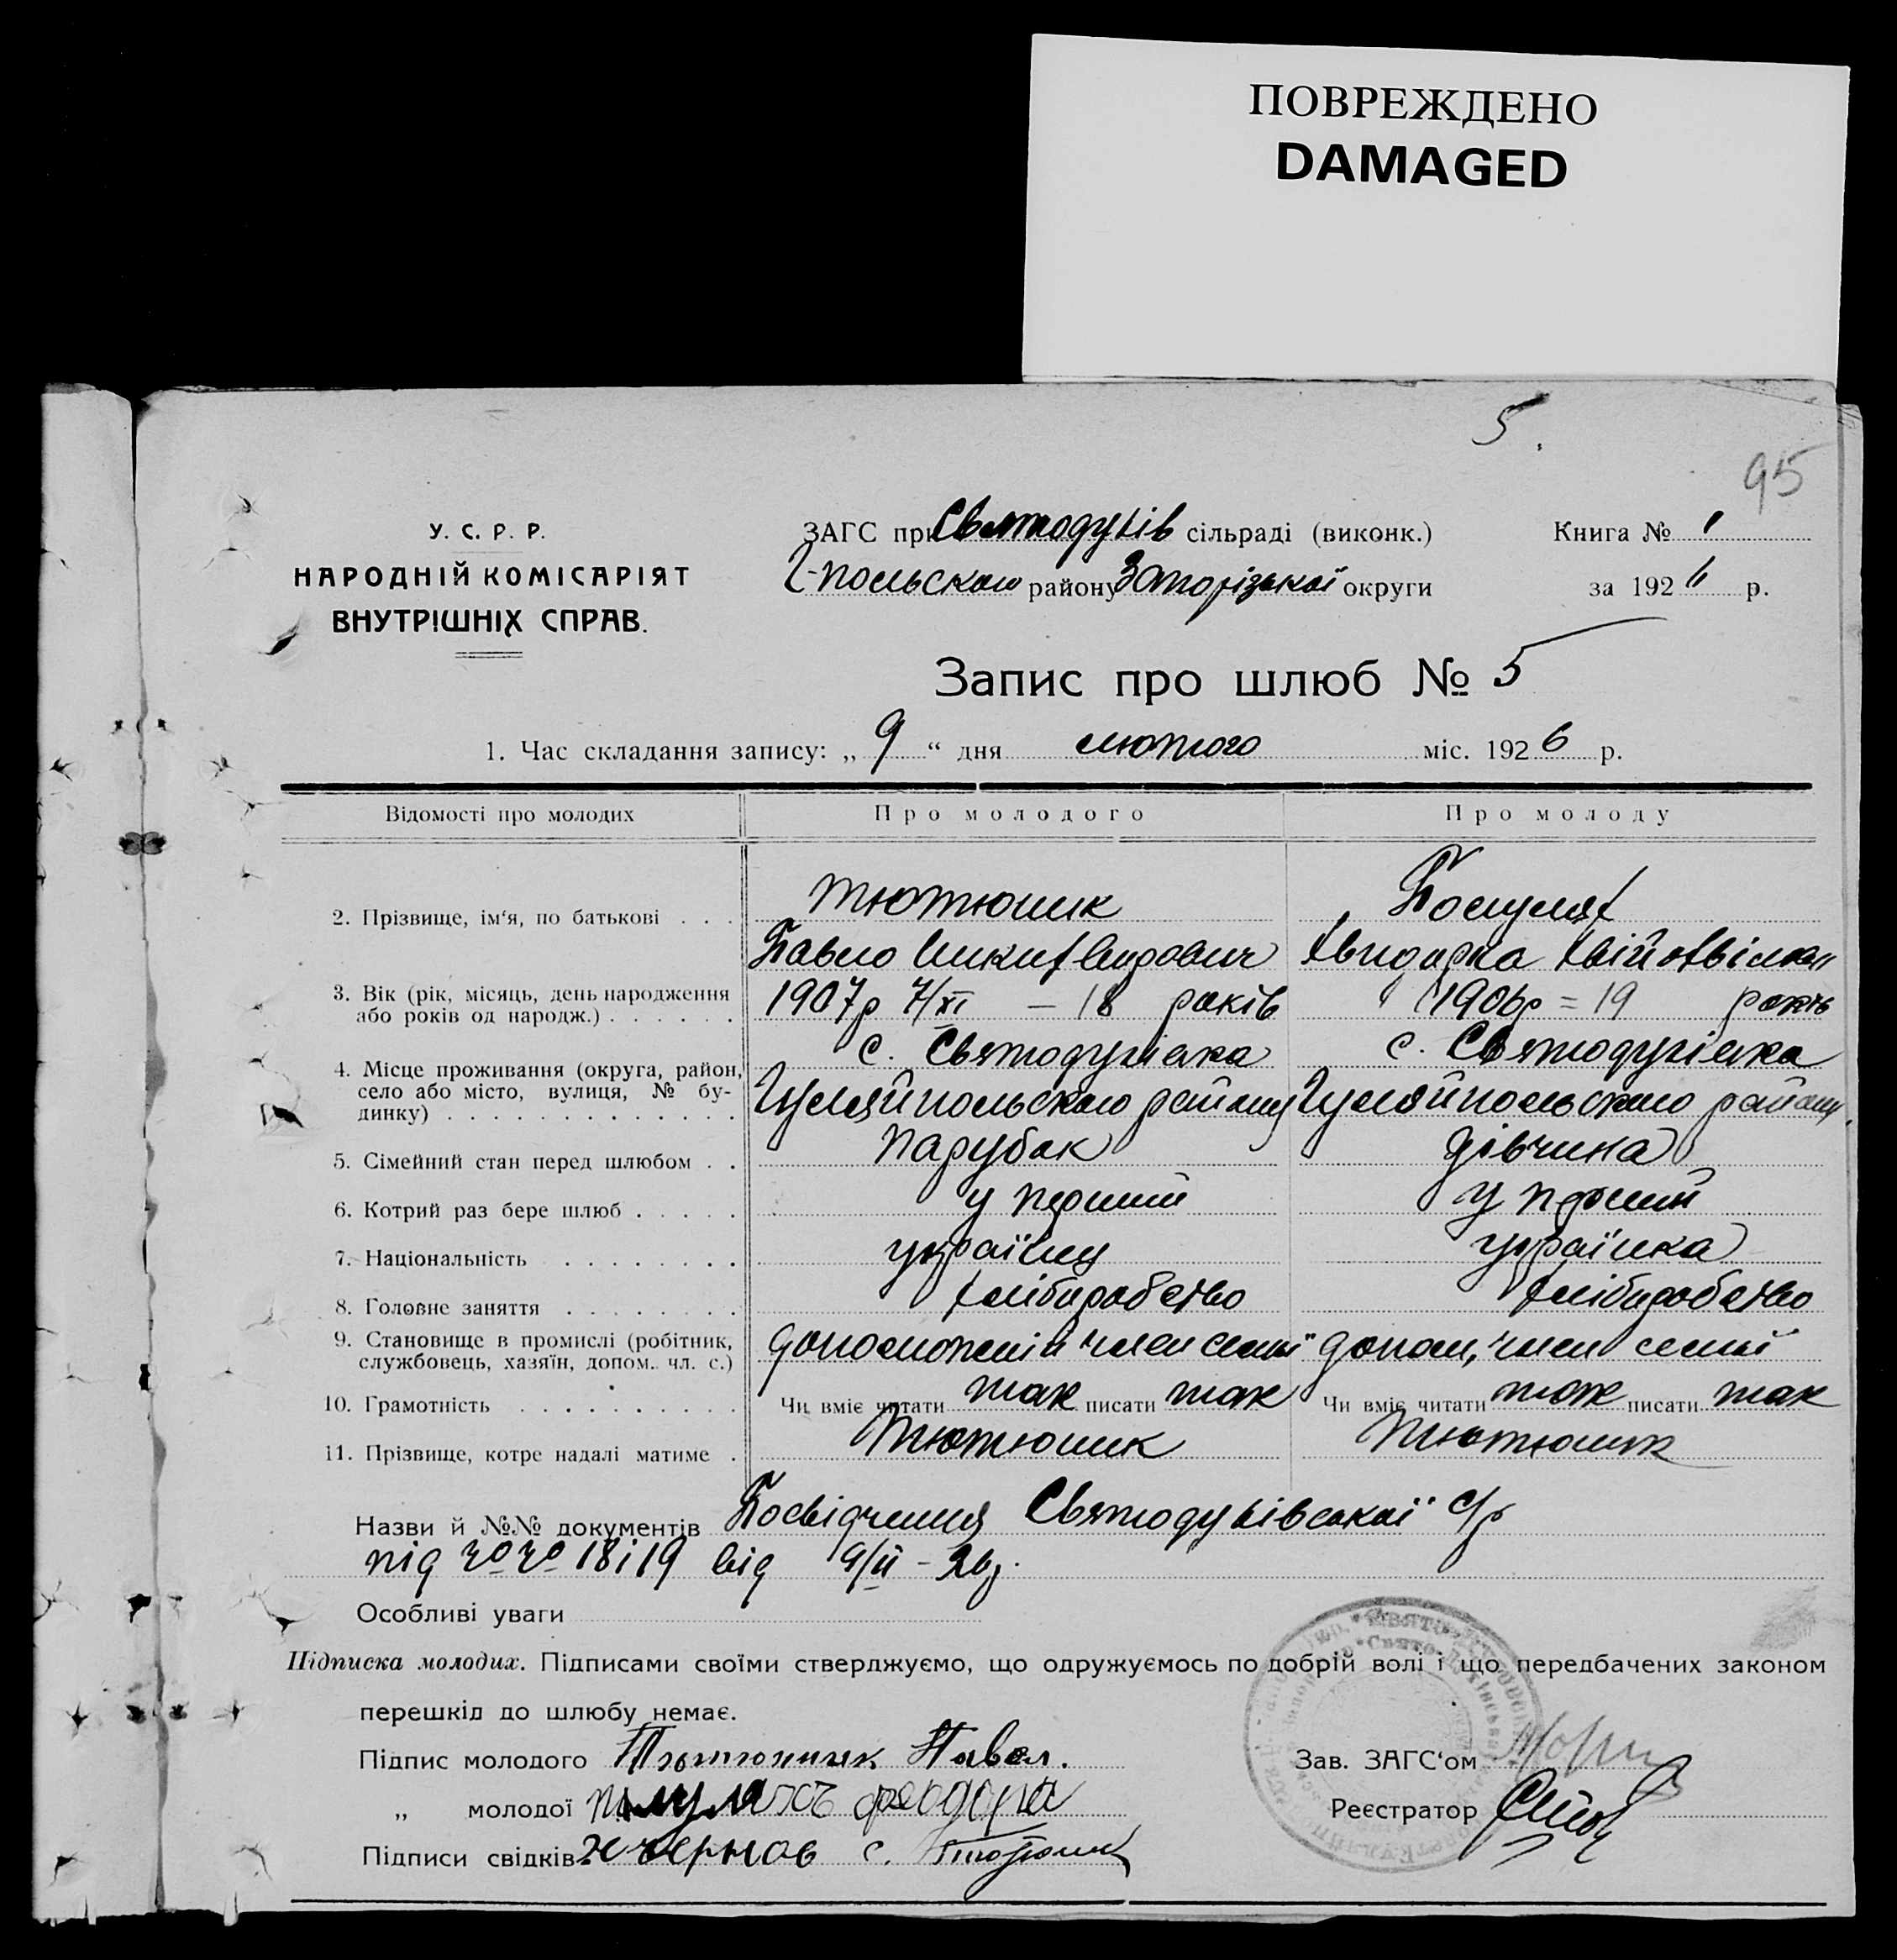 ПОВРЕЖДЕНО
DAMAGED
5.
95
У. С. Р. Р.
НАРОДНІЙ КОМІСАРІЯТ
ВНУТРІШНІХ СПРАВ.
ЗАГС при Святодухів сільраді (виконк.)
Г-польского району Запорізької округи
Книга № 1
за 1926 р.
Запис про шлюб № 5
1. Час складання запису: „ 9 “ дня лютого міс. 1926 р.
Відомості про молодих
Про молодого
Про молоду
2. Прізвище, ім‘я, по батькові . . .
Тютюник
Павло
3. Вік (рік, місяць, день народження
або років од народж.) . . . . . .
1907р 7/XI – 18 років
1906р = 19 років
4. Місце проживання (округа, район,
село або місто, вулиця, № бу-
динку) . . . . . . . . . . . . .
с. Святодухівка
Гуляйпольского району
с. Святодухівка
Гуляйпольского району
5. Сімейний стан перед шлюбом . .
парубок
дівчина
6. Котрий раз бере шлюб . . . . .
у перший
у перший
7. Національність . . . . . . . .
українец
українка
8. Головне заняття . . . . . . . .
хліборобство
хліборобство
9. Становище в промислі (робітник,
службовець, хазяїн, допом. чл. с.)
член семьї
допом, член семьї
10. Грамотність . . . . . . . . . .
Чи вміє читати так писати так
Чи вміє читати так писати так
11. Прізвище, котре надалі матиме .
Тютюник
Тютюник
Назви й №№ документів Посвідчення Святодухівської с/р
під №№ 18 і 19 від 9/II – 26р.
Особливі уваги
Підписка молодих. Підписами своїми стверджуємо, що одружуємось по добрій волі і що передбачених законом
перешкід до шлюбу немає.
Підпис молодого Тютюнник Павел.
„ молодої феодора
Підписи свідків Чернов С. Тютюник
Зав. ЗАГС‘ом
Реєстратор